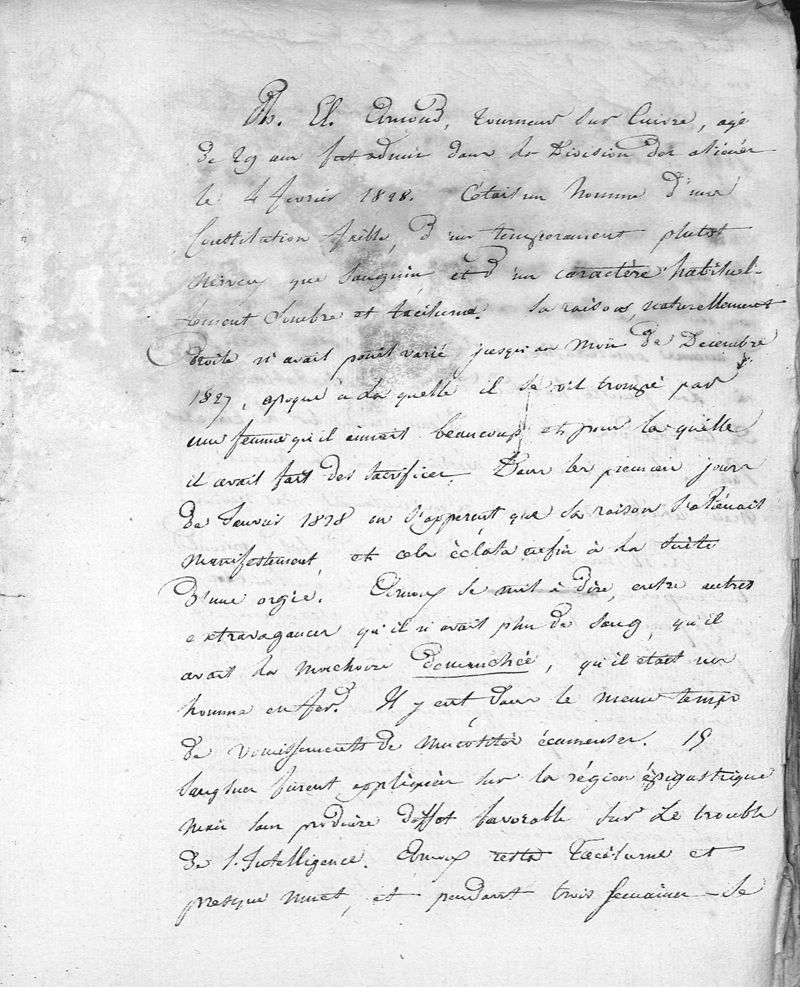 Ph. El. Arnoux, tourneur sur Cuivre, agé
de 29 ans fut admis dans la Division des aliénés
le 4 fevrier 1828. C'était un homme d'une
Constitution faible, d'un temperament plutot
nerveux que sanguin, et d'un caractère habituel-
lement sombre et taciturne. Sa raison, naturellement
droite n'avait point varié jusqu'au mois de Decembre
1827, epoque à la quelle il se vit trompé par
une femme qu'il aimait beaucoup et pour la quelle
il avait fait des sacrifices. Dans les premiers jours
de Janvier 1828 on s'apperçut que sa raison s'aliénait
manifestement, et cela éclata enfin à la suite
d'une orgie. Arnoux se mit à dire, entre autres
extravagances qu'il n'avait plus de sang, qu'il
avait la machoire demanchée, qu'il etait un
homme en fer. Il y eut dans le meme temps
de vomissements de mucosités écumeuses. 15
sangsues furent appliquées sur la région épigastrique
mais sans produire d'effet favorable sur le trouble
de l'Intelligence. Arnoux resta Taciturne et
presque muet, et pendant trois semaines se